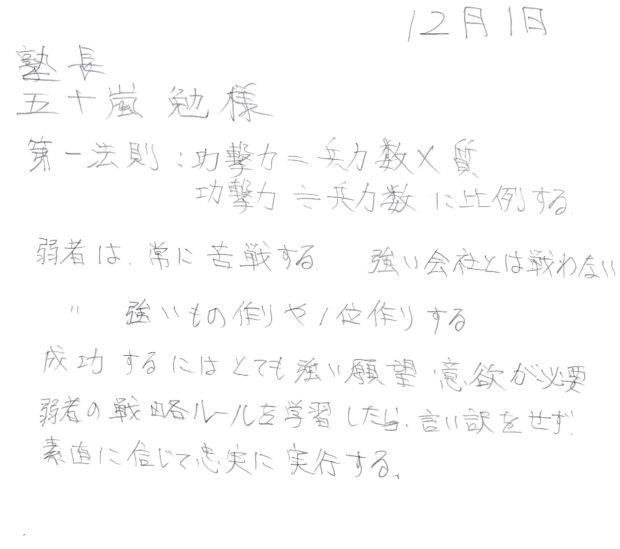 12月1日
塾長
五十嵐勉様
第一法則：功撃力＝兵力数×質
功撃力≒兵力数に比例する
弱者は、常に苦戦する 強い会社とは戦わない
〃 強いもの作りや1位作りする
成功するにはとても強い願望、意欲が必要
弱者の戦略ルールを学習したら、言い訳をせず、
素直に信じて忠実に実行する。